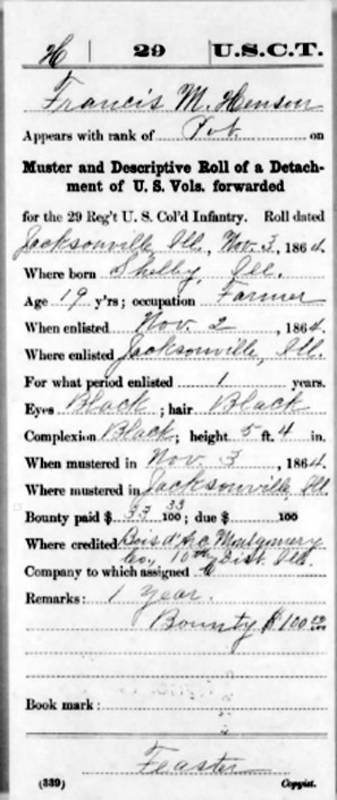 H | 29 | U.S.C.T.
Francis M. Henson
Appears with rank of Pvt. on
Muster and Descriptive Roll of a Detach-
ment of U. S. Vols. forwarded
for the 29 Reg't U. S. Col'd Infantry. Roll dated
Jacksonville, Ill., Nov. 3, 1864.
Where born Shelby, Ill.
Age 19 y'rs; occupation Farmer
When enlisted Nov. 2, 1864.
Where enlisted Jacksonville, Ill.
For what period enlisted 1 years.
Eyes Black; hair Black
Complexion Black; height 5 ft. 4 in.
When mustered in Nov 3, 1864.
Where mustered in Jacksonville, Ill.
Bounty paid $ 33 33/100; due $ 100
Where credited Bois d'Arc Montgomery
Co., 10th Dist. Ill.
Company to which assigned
Remarks: 1 Year.
Bounty $100
Book mark:
Feaster
(339) Copyist.